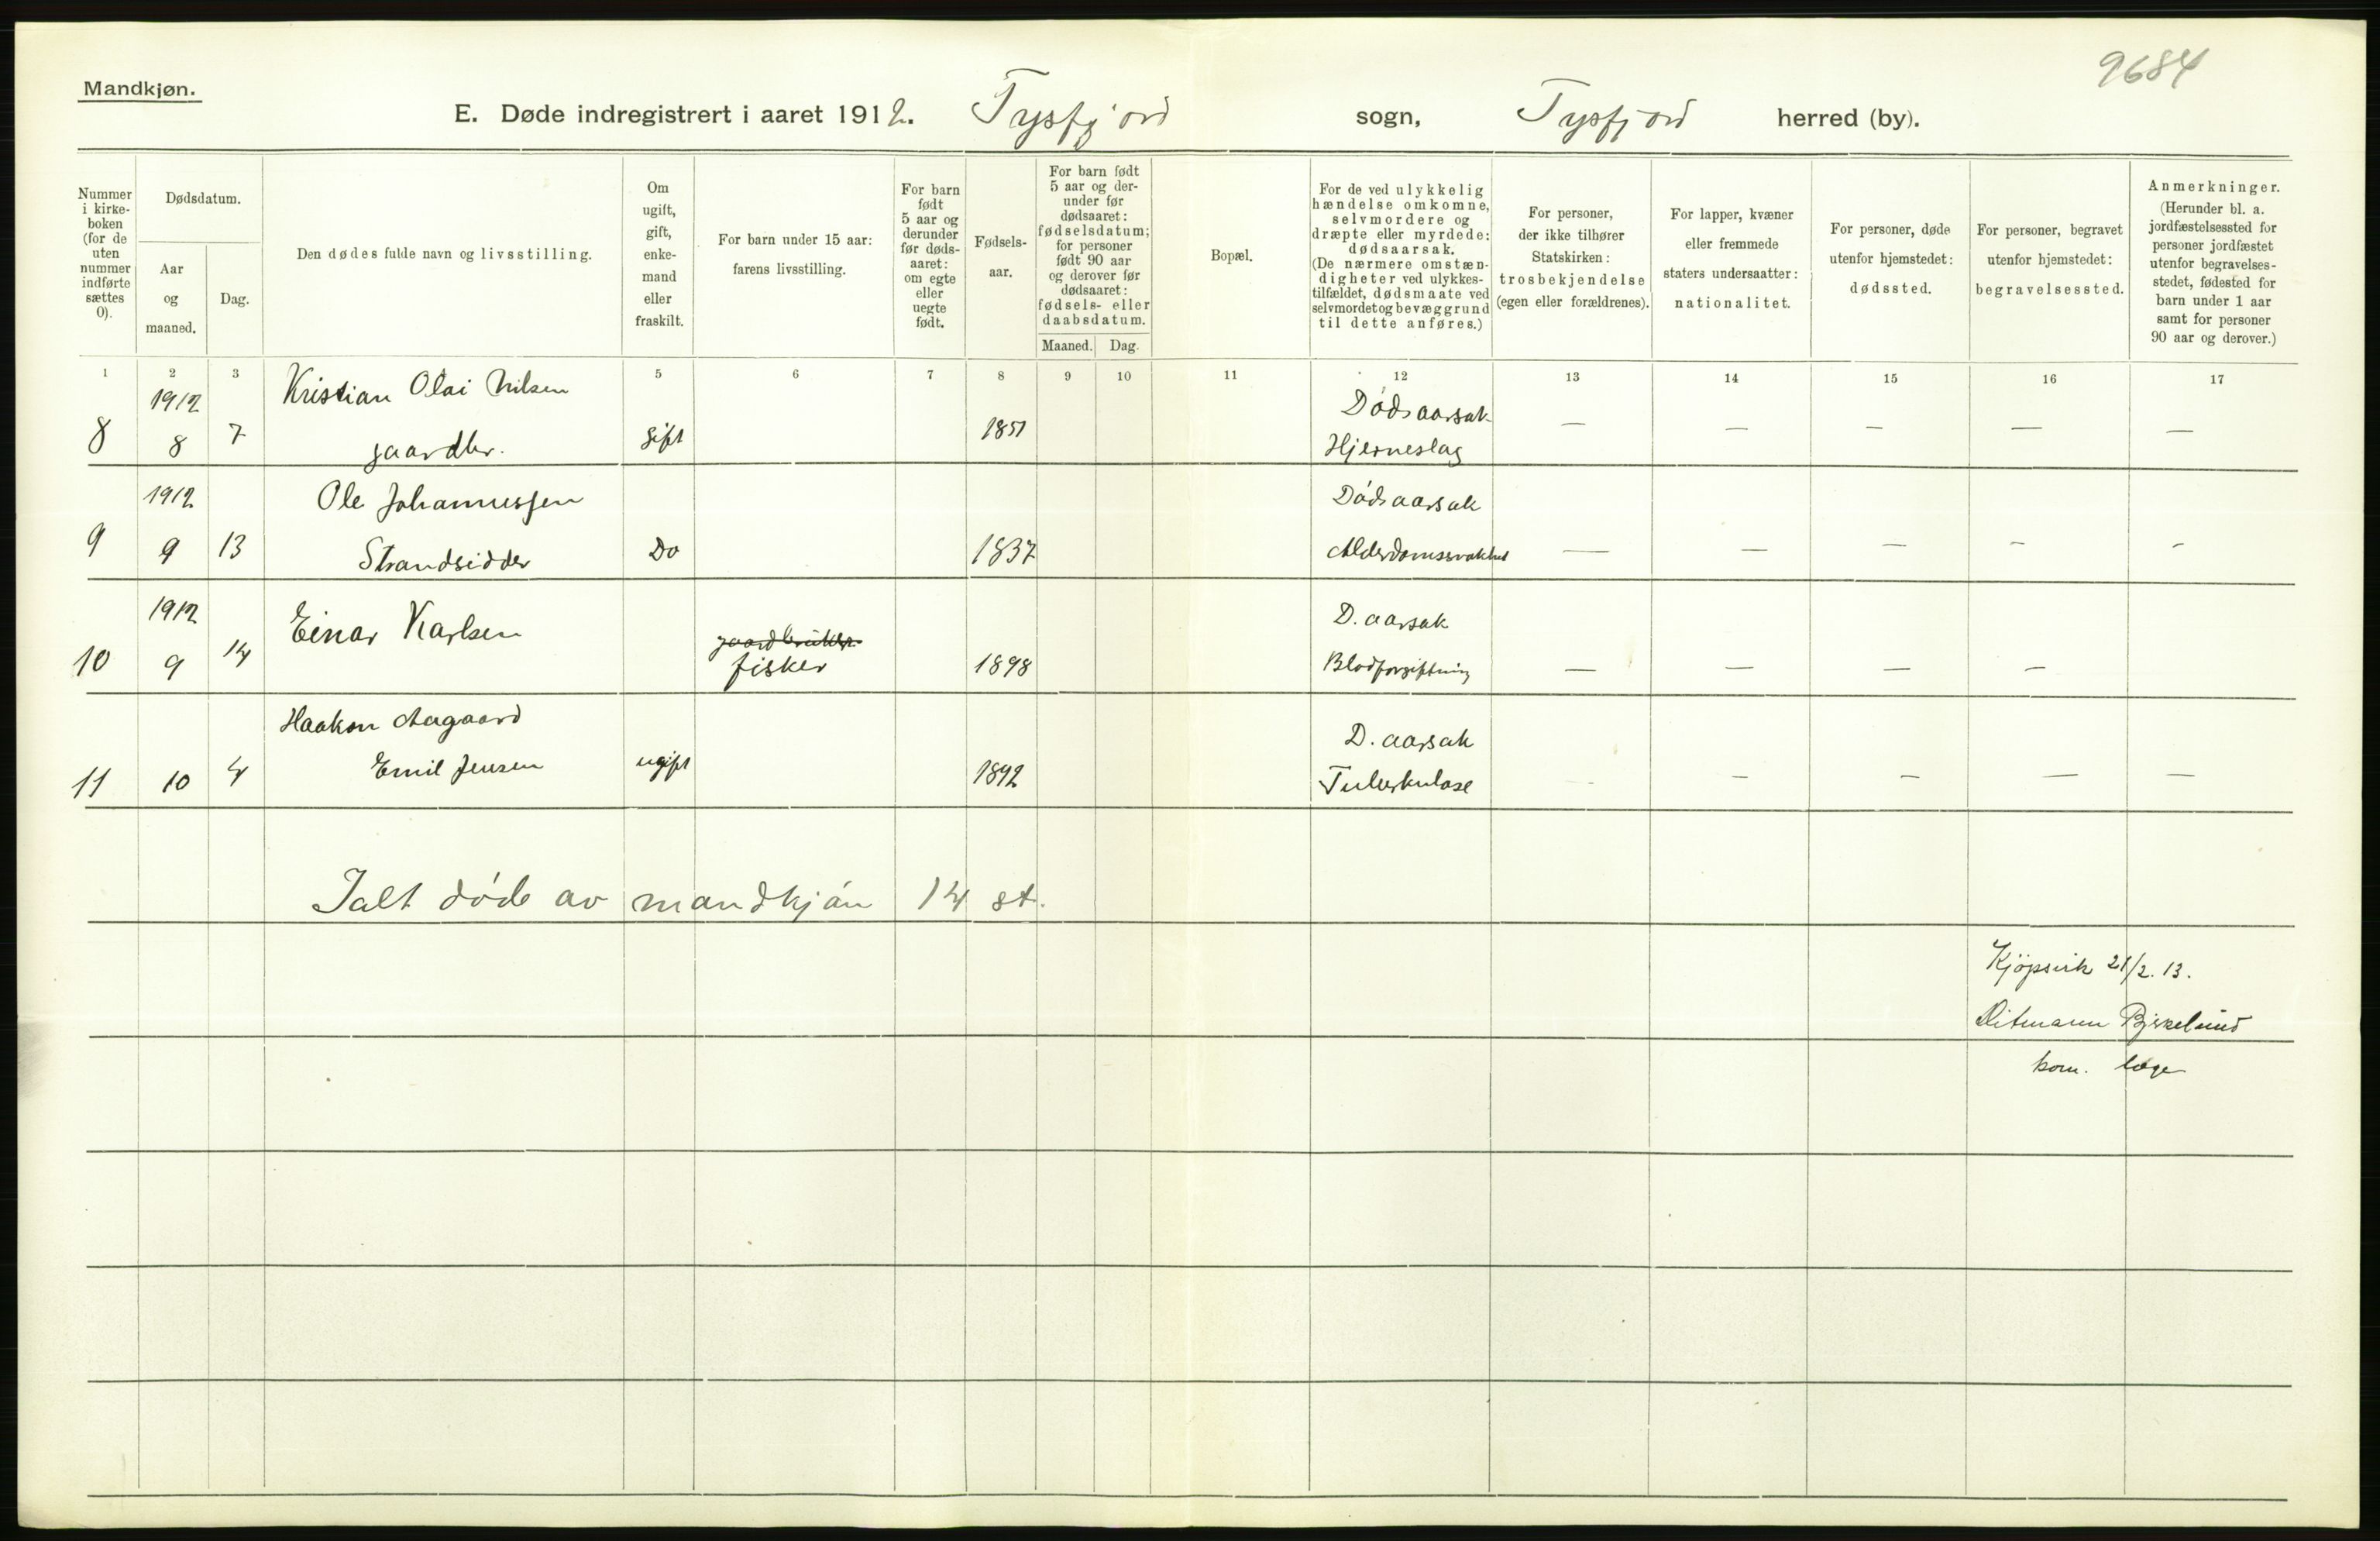 9684
Mandkjøn.
E. Døde indregistrert i aaret 1912. Tysfjord sogn, Tysfjord herred (by).
Nummer i kirke-boken (for de uten nummer indførte sættes 0).
Dødsdatum.
Aar og maaned.
Dag.
Den dødes fulde navn og livsstilling.
Om ugift, gift, enke-mand eller fraskilt.
For barn under 15 aar: farens livsstilling.
For barn født 5 aar og derunder før døds-aaret: om egte eller uegte født.
Fødsels-aar.
For barn født 5 aar og der-under før dødsaaret: fødselsdatum; for personer født 90 aar og derover før dødsaaret: fødsels- eller daabsdatum.
Maaned. Dag.
Bopæl.
For de ved ulykkelig hændelse omkomne, selvmordere og dræpte eller myrdede: dødsaarsak. (De nærmere omstæn-digheter ved ulykkes-tilfældet, dødsmaate ved selvmordet og bevæggrund til dette anføres.)
For personer, der ikke tilhører Statskirken: trosbekjendelse (egen eller forældrenes).
For lapper, kvæner eller fremmede staters undersaatter: nationalitet.
For personer, døde utenfor hjemstedet: dødssted.
For personer, begravet utenfor hjemstedet: begravelsessted.
Anmerkninger. (Herunder bl. a. jordfæstelsessted for personer jordfæstet utenfor begravelses-stedet, fødested for barn under 1 aar samt for personer 90 aar og derover.)
1 2 3 5 6 7 8 9 10 11 12 13 14 15 16 17
1912 Kristian Olai Nilsen Dødsaarsak
8 8 7 gaardbr. gift 1851 Hjerneslag — — — — —
1912 Ole Johannessen Dødsaarsak
9 9 13 Strandsidder Do 1837 Alderdomssvakhet — — — — -
1912 Einar Karlsen gaardbruker D. aarsak
10 9 14 fisker 1898 Blodforgiftning — — — —
Haakon Aagaard D. aarsak
11 10 4 Emil Jensen ugift 1892 Tuberkulose — — — — —
Ialt døde av mandkjøn 14 st.
Kjøpsvik 21/2. 13.
Ditmann Bjerkelund
kom. læge